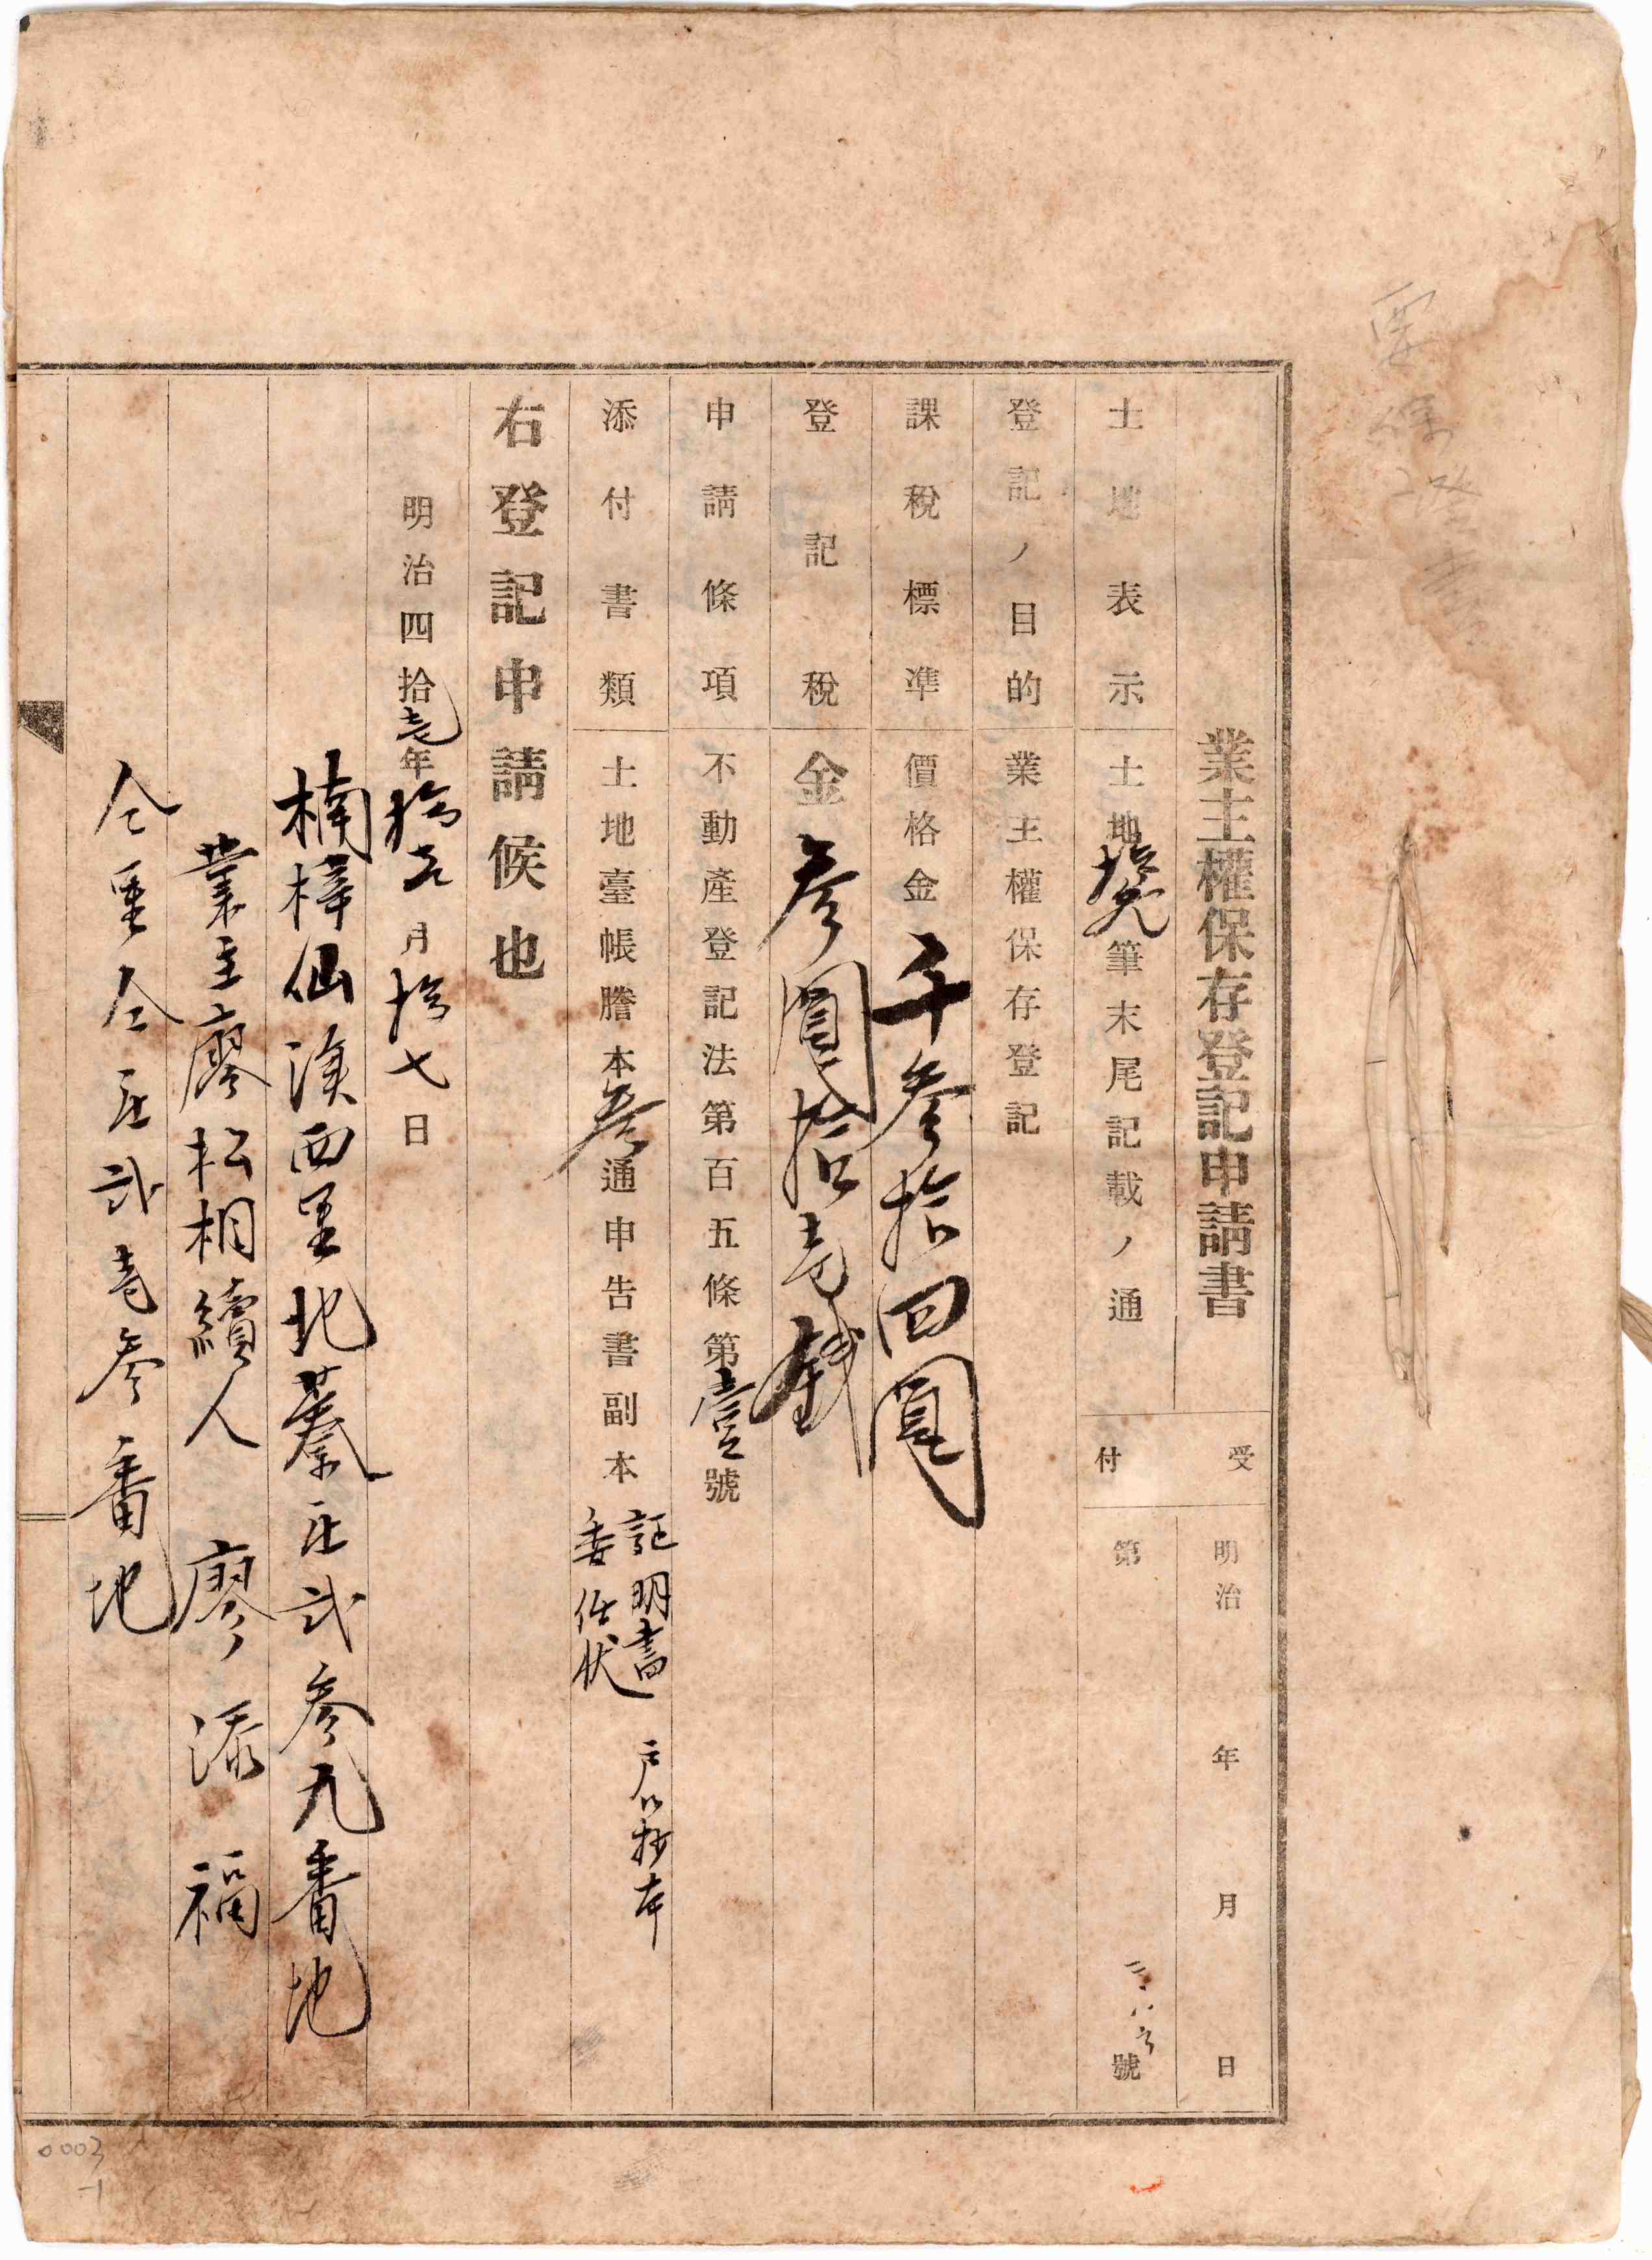 業主權保存登記申請書
受付
明治 年 月 日
第 號
土地表示 土地拾九筆末尾記載ノ通
登記ノ目的 業主權保存登記
課稅標準 價格金千參拾四圓
登記稅 金參圓拾壱戔
申請條項 不動產登記法第百五條第壹號
添付書類 土地臺帳謄本參通申告書副本 証明書 戸口抄本
委任状
右登記申請候也
明治四拾壱年拾弍月拾七日
楠梓仙溪西里北蓁庄弍參九番地
業主廖松相續人 廖添福
仝里仝庄弍壱參番地
0003
-1